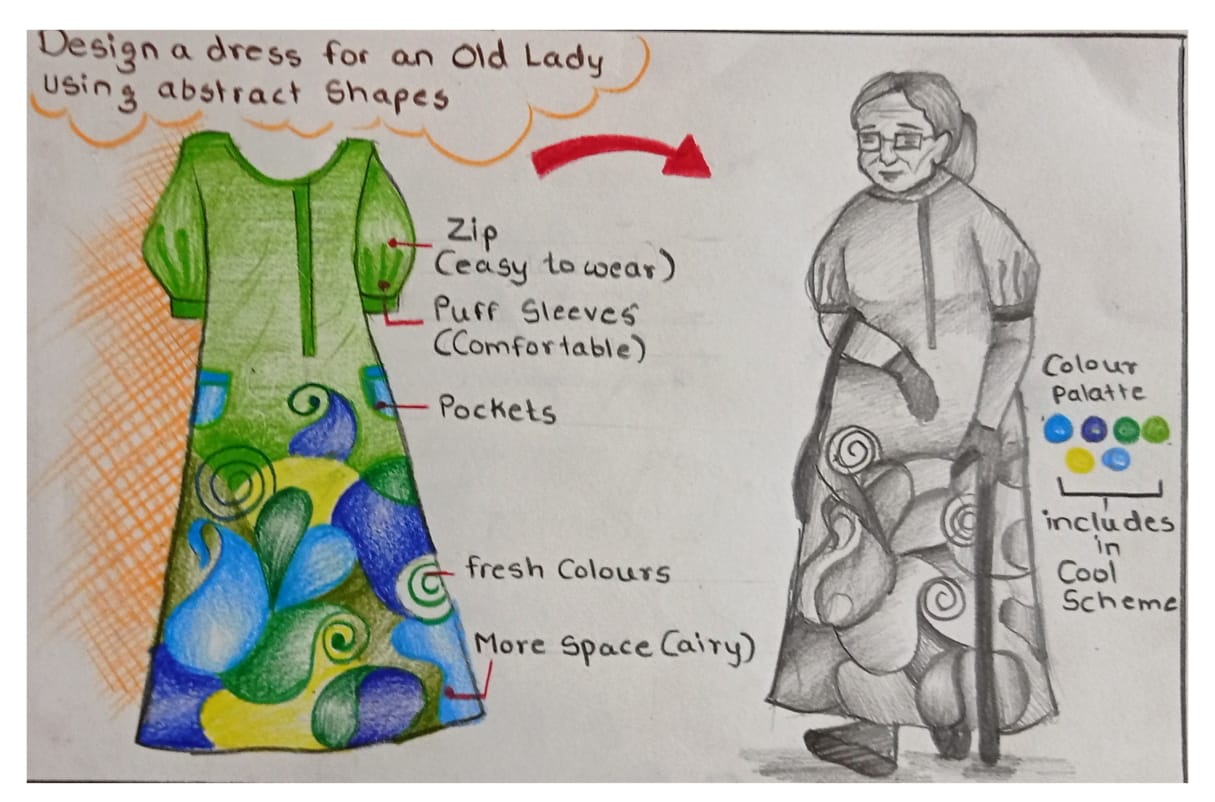 Design a dress for an Old Lady
using abstract Shapes
Zip
(easy to wear)
Puff Sleeves
(Comfortable)
Pockets
fresh Colours
More Space (airy)
Colour
Palatte
includes
in
Cool
Scheme